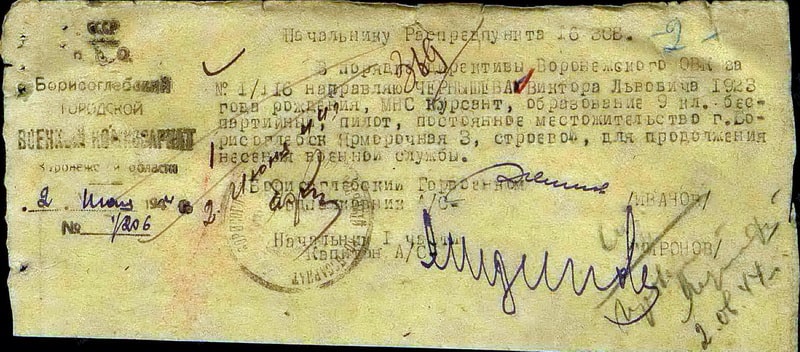 СССР
Н К О
Борисоглебский
ГОРОДСКОЙ
ВОЕННЫЙ КОМИССАРИАТ
Воронежской области
2 июня 1944
№ 1/206
Начальнику Распредпункта 16 ЗСБ.
- 2 -
369
В порядке директивы Воронежского ОВК за
№ 1/118 направляю ЧЕРНЫШЕВА Виктора Львовича 1923
года рождения, МНС Курсант, образование 9 кл. бес-
партийный, пилот, постоянное местожительство г.Бо-
рисоглебск Ярморочная 3, строевой, для продолжения
несения военной службы.
Борисоглебский Горвоенком
Подполковник А/С- /ИВАНОВ/
Начальник 1 части
Капитан А/С- /МИРОНОВ/
2.06.44